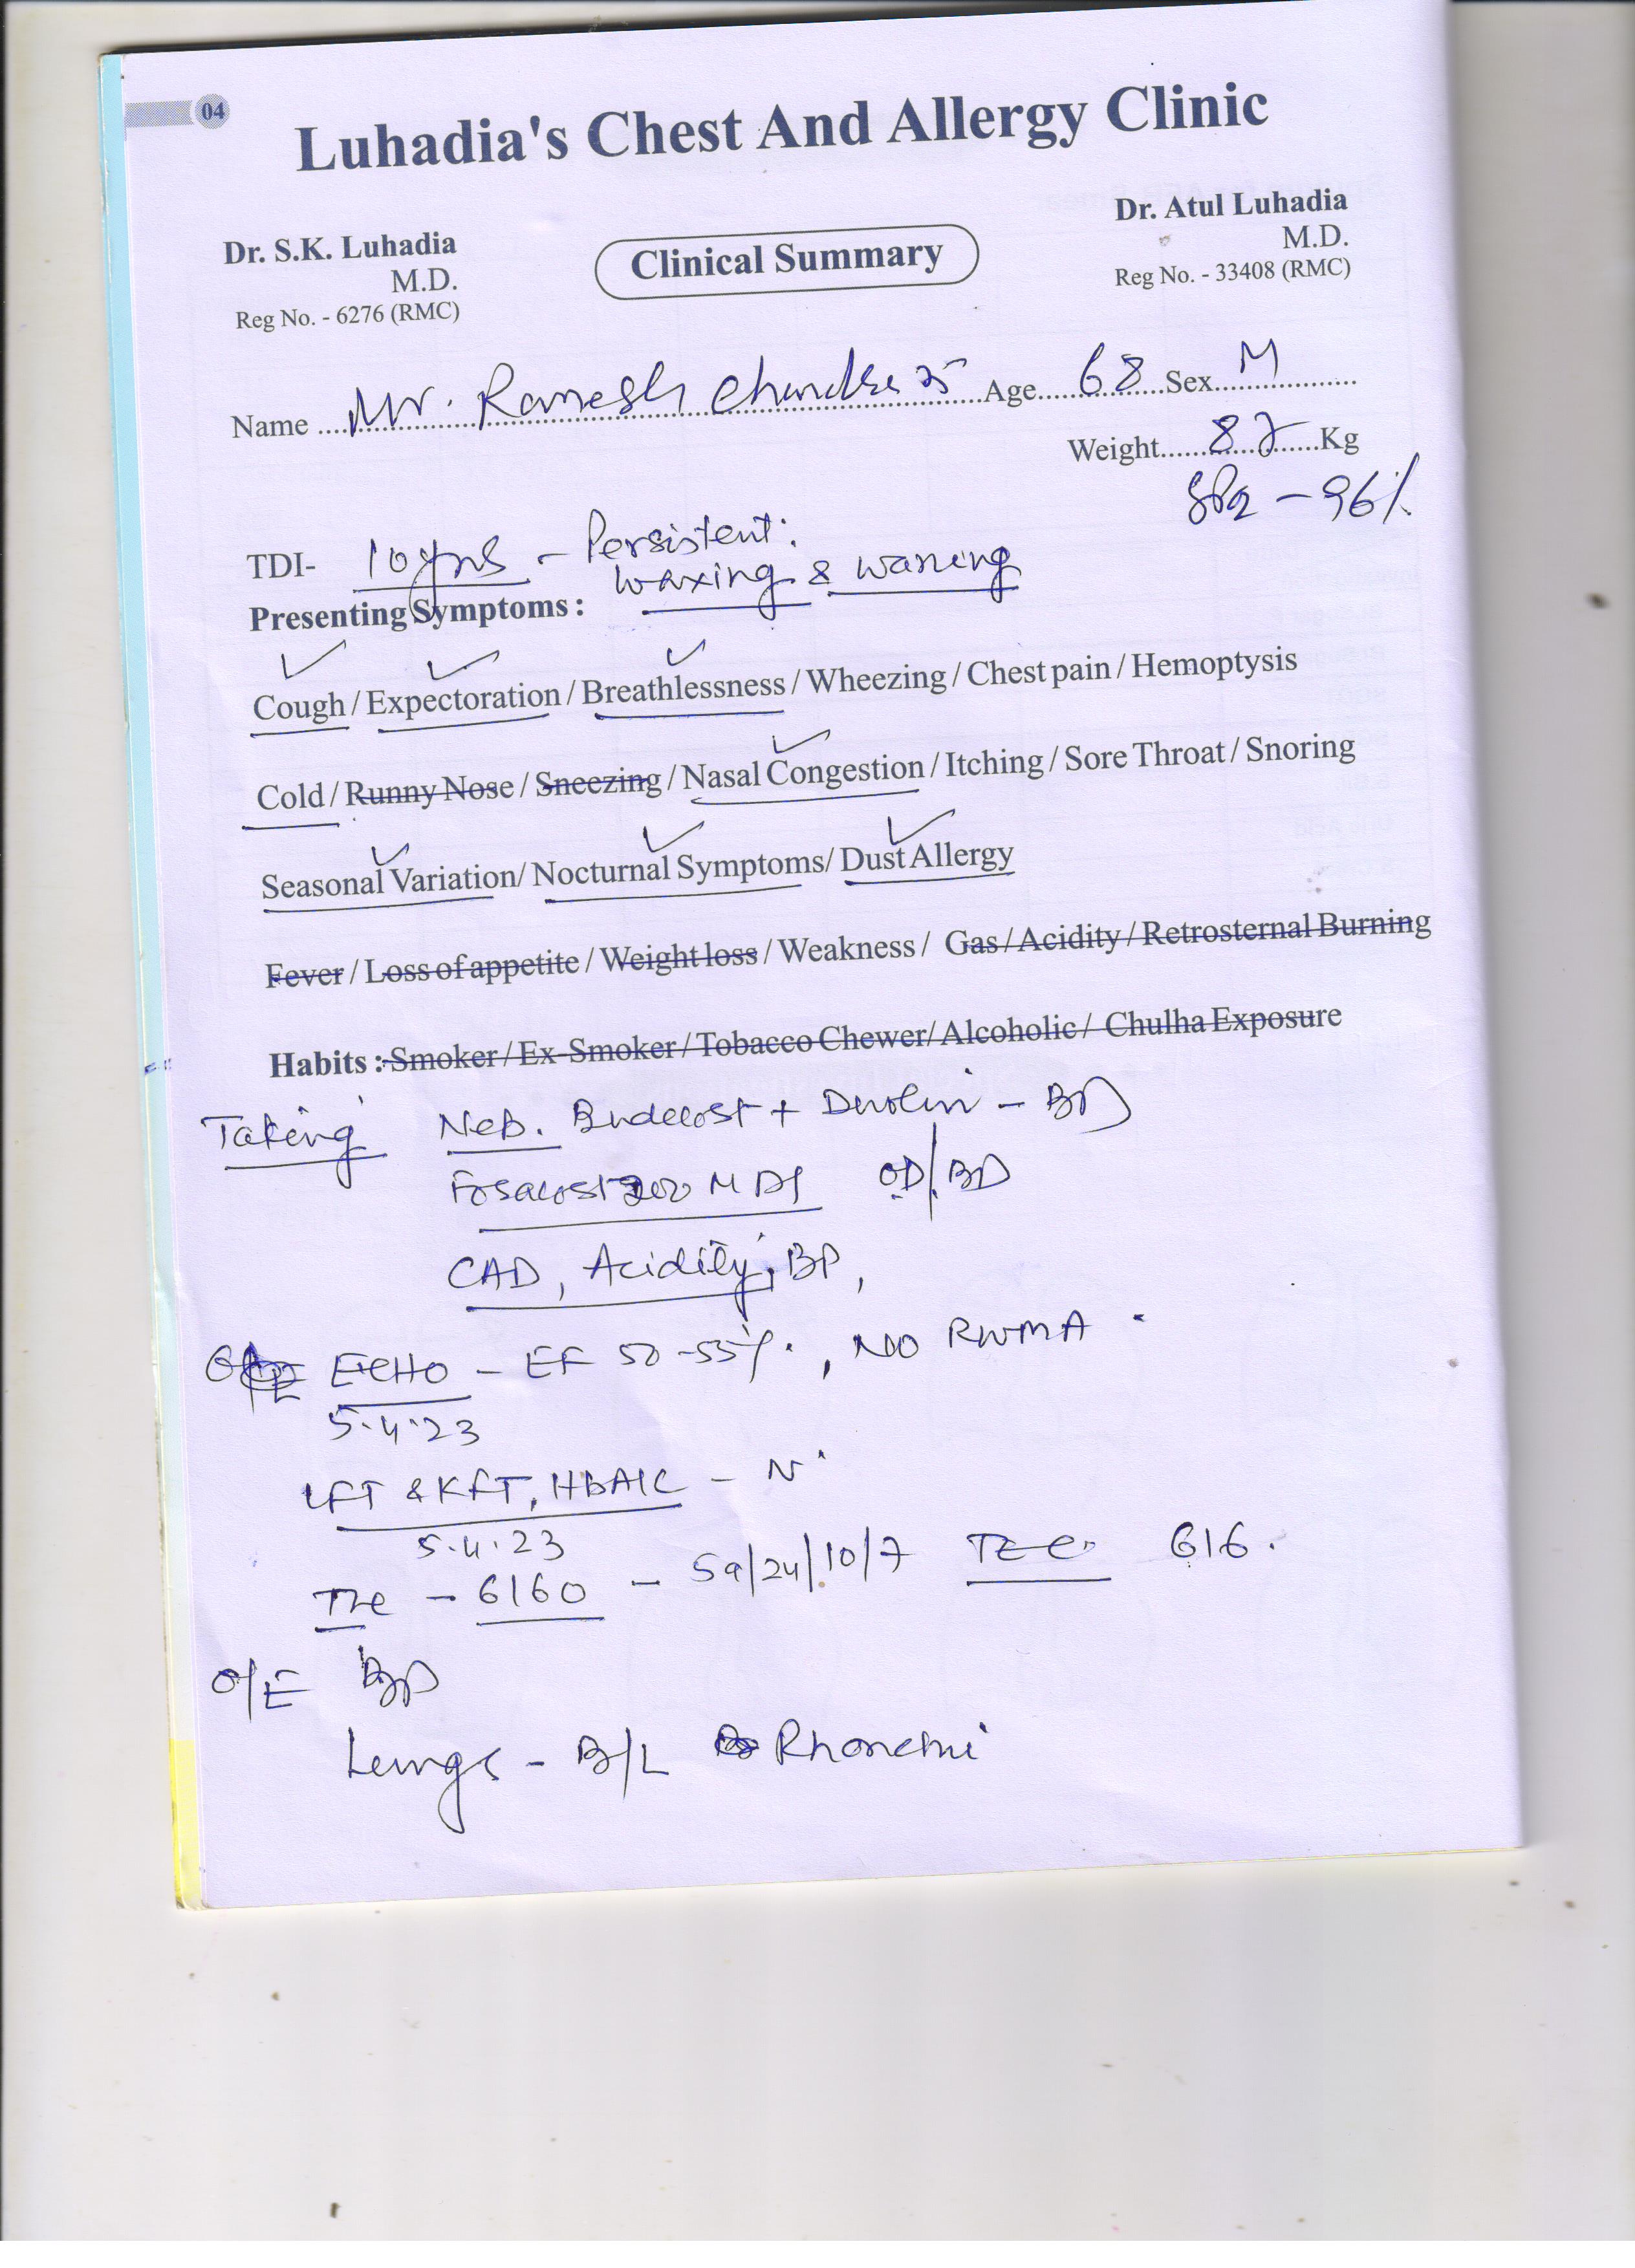 04
Luhadia's Chest And Allergy Clinic
Dr. S.K. Luhadia
M.D.
Reg No. - 6276 (RMC)
Clinical Summary
Dr. Atul Luhadia
M.D.
Reg No. - 33408 (RMC)
Name Mr. Ramesh Chandra Age 68 Sex M
Weight 82 Kg
SPO2 - 96%
TDI- 10 yrs - Persistent
waxing & waning
Presenting Symptoms :
Cough / Expectoration / Breathlessness / Wheezing / Chest pain / Hemoptysis
Cold / Runny Nose / Sneezing / Nasal Congestion / Itching / Sore Throat / Snoring
Seasonal Variation/ Nocturnal Symptoms/ Dust Allergy
Fever / Loss of appetite / Weight loss / Weakness / Gas / Acidity / Retrosternal Burning
Habits : Smoker / Ex-Smoker / Tobacco Chewer/ Alcoholic / Chulha Exposure
Taking Neb. Budecost + Duolin - BD
Foracost 200 MDI OD/BD
CAD, Acidity, BP,
ECHO - EF 50-55%, NO RWMA
5.4.23
LFT & KFT, HbA1C - N
5.4.23
TLC - 6160 - 59/24/10/7 TEC 616.
O/E BP
Lungs - B/L Rhonchi